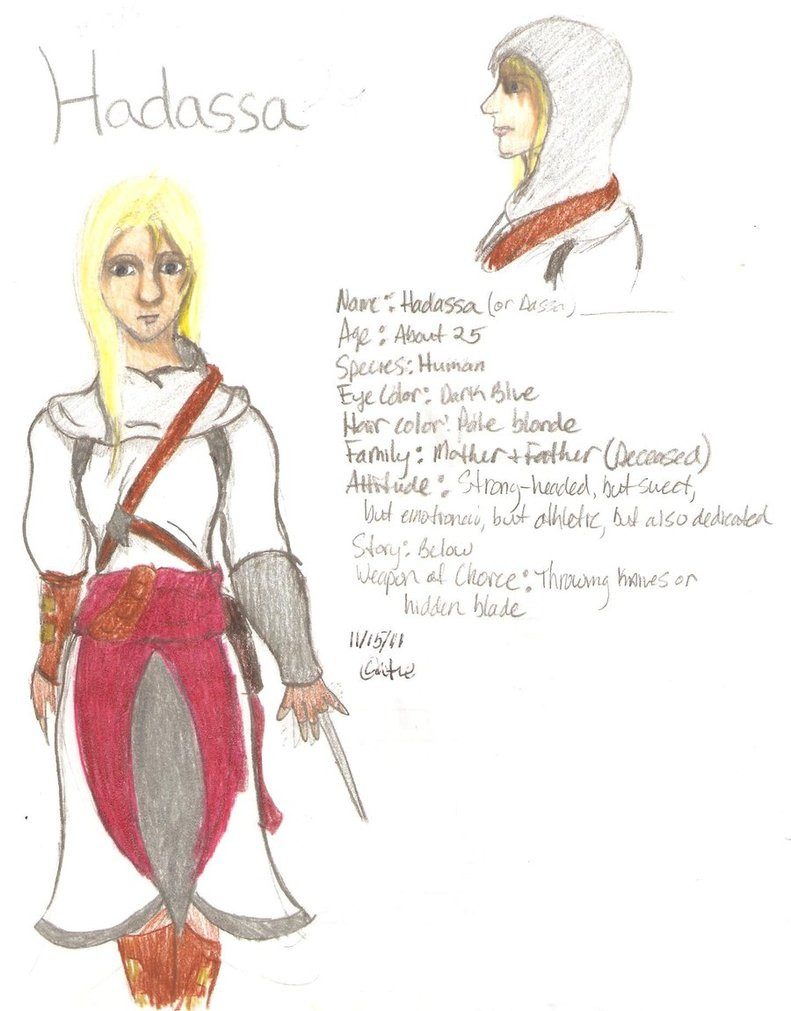 Hadassa
Name: Hadassa (or Dassa) ________
Age: About 25
Species: Human
Eye Color: Dark Blue
Hair color: Pale blonde
Family: Mother + Father (Deceased)
Attitude: Strong-headed, but sweet,
but emotional, but athletic, but also dedicated
Story: Below
Weapon of Choice: Throwing knives or
hidden blade
11/15/11